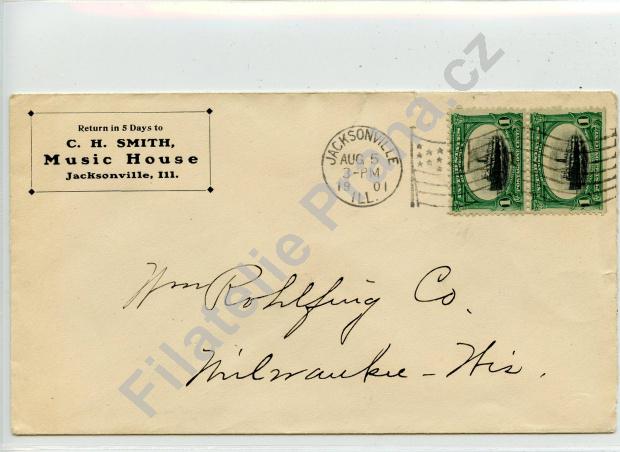 Return in 5 Days to
C. H. SMITH,
Music House
Jacksonville, Ill.
JACKSONVILLE
AUG 5
3-PM
1901
ILL.
1 1
Wm Rohlfing Co.
Milwaukee - Wis.
Filatelie Praha.cz